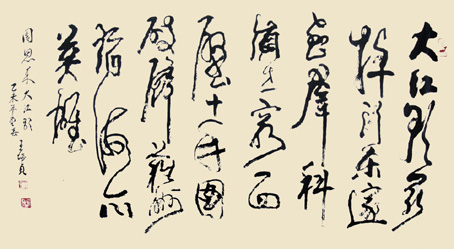 大江歌罷
掉頭東邃
密羣科
濟世窮面
壁十年圖
破壁難酬
蹈海亦
英雄
周恩来大江歌
乙未年